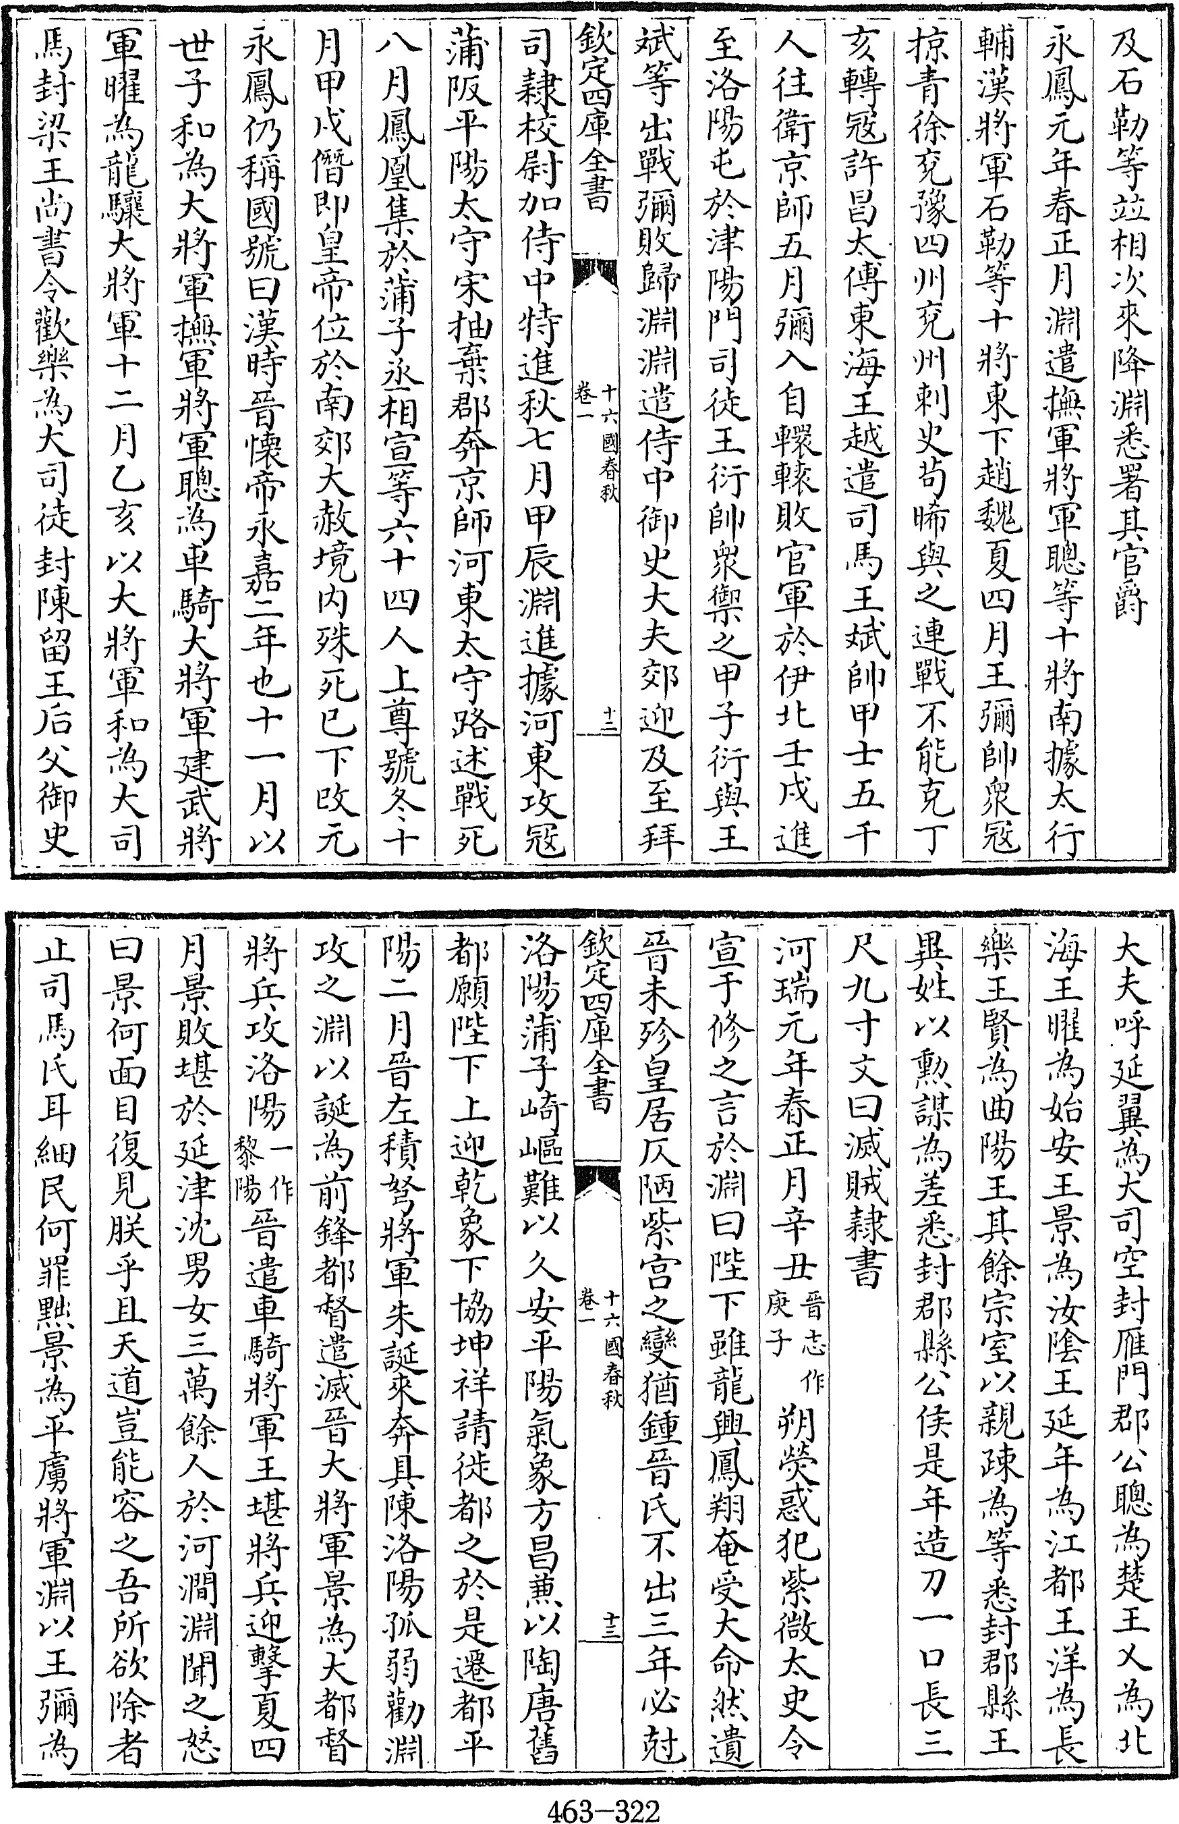 及石勒等竝相次來降淵悉署其官爵
永鳳元年春正月淵遣撫軍將軍聰等十將南據太行
輔漢將軍石勒等十將東下趙魏夏四月王彌帥衆寇
掠青徐兖豫四州兖州刺史茍晞與之連戰不能克丁
亥轉寇許昌太傅東海王越遣司馬王斌帥甲士五千
人往衛京師五月彌入自轘轅敗官軍於伊北壬戌進
至洛陽屯於津陽門司徒王衍帥衆禦之甲子衍與王
斌等出戰彌敗歸淵淵遣侍中御史大夫郊迎及至拜
欽定四庫全書
十六國春秋
卷一
十二
司隸校尉加侍中特進秋七月甲辰淵進據河東攻寇
蒲阪平陽太守宋抽棄郡奔京師河東太守路述戰死
八月鳳凰集於蒲子丞相宣等六十四人上尊號冬十
月甲戌僭即皇帝位於南郊大赦境内殊死已下改元
永鳳仍稱國號曰漢時晉懷帝永嘉二年也十一月以
世子和為大將軍撫軍將軍聰為車騎大將軍建武將
軍曜為龍驤大將軍十二月乙亥以大將軍和為大司
馬封梁王尚書令歡樂為大司徒封陳留王后父御史
大夫呼延翼為大司空封雁門郡公聰為楚王乂為北
海王曜為始安王景為汝陰王延年為江都王洋為長
樂王賢為曲陽王其餘宗室以親疎為等悉封郡縣王
異姓以勲謀為差悉封郡縣公侯是年造刀一口長三
尺九寸文曰滅賊隸書
河瑞元年春正月辛丑晉志作庚子朔熒惑犯紫微太史令
宣于修之言於淵曰陛下雖龍興鳳翔奄受大命然遺
晉未殄皇居仄陋紫宮之變猶鍾晉氏不出三年必尅
欽定四庫全書
十六國春秋
卷一
十三
洛陽蒲子崎嶇難以久安平陽氣象方昌兼以陶唐舊
都願陛下上迎乾象下協坤祥請徙都之於是遷都平
陽二月晉左積弩將軍朱誕來奔具陳洛陽孤弱勸淵
攻之淵以誕為前鋒都督遣滅晉大將軍景為大都督
將兵攻洛陽一作黎陽晉遣車騎將軍王堪將兵迎擊夏四
月景敗堪於延津沈男女三萬餘人於河澗淵聞之怒
曰景何面目復見朕乎且天道豈能容之吾所欲除者
止司馬氏耳細民何罪黜景為平虜將軍淵以王彌為
463-322